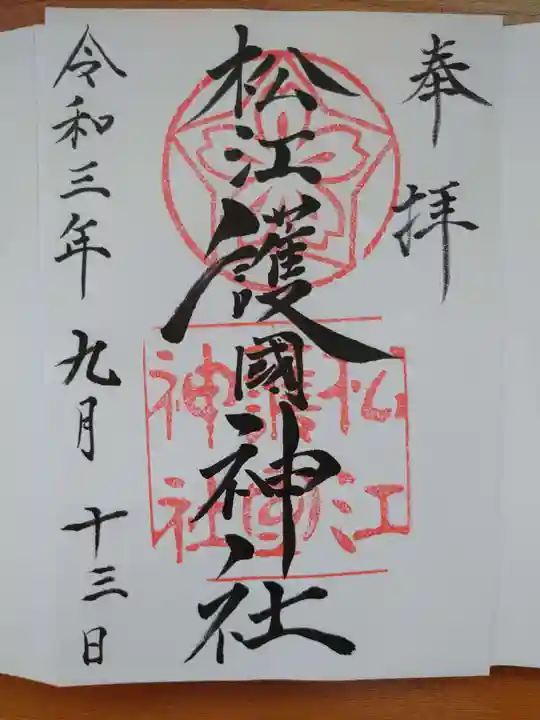 奉拝
松江護國神社
松江
護國
神社
令和三年 九月 十三日